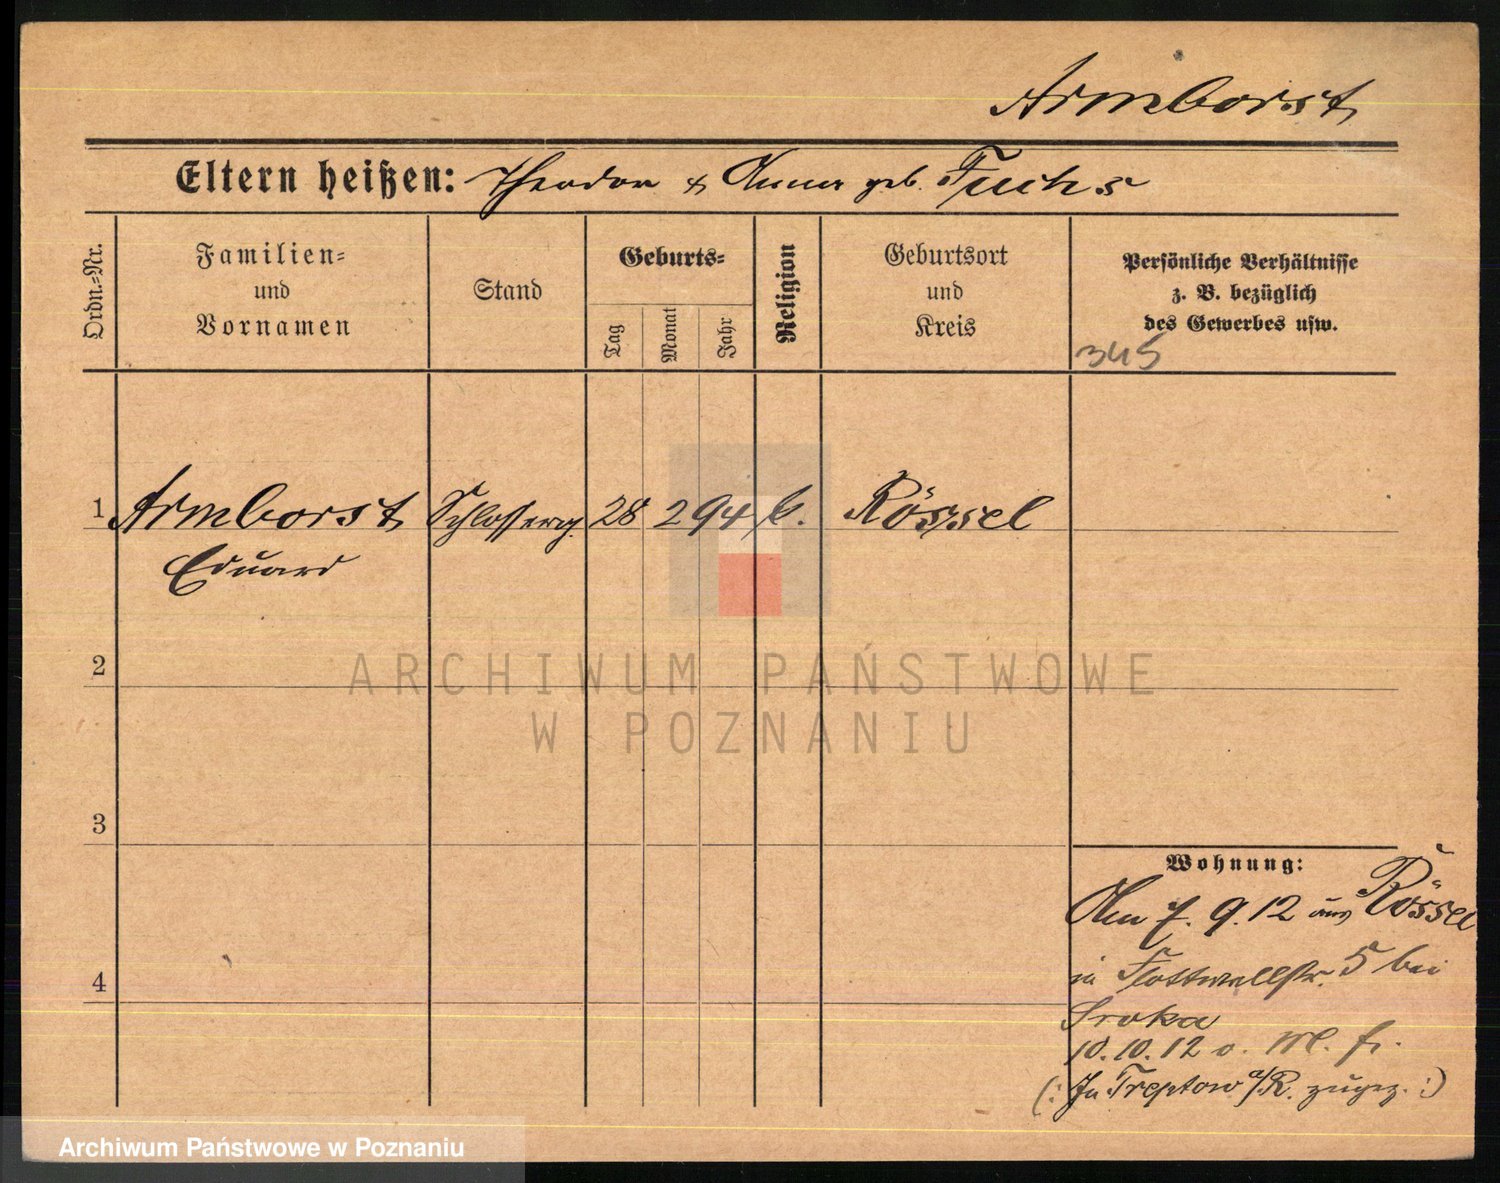 Armborst
Eltern heißen: Theodor & Anna geb. Fuchs
Ordn.-Nr.
Familien-
und
Vornamen
Stand
Geburts-
Tag
Monat
Jahr
Religion
Geburtsort
und
Kreis
Persönliche Verhältnisse
z. B. bezüglich
des Gewerbes usw.
345
1 Armborst Schlosserg. 28 2 94 k. Rössel
Eduard
2
ARCHIWUM PAŃSTWOWE
W POZNANIU
3
Wohnung:
Am 7. 9. 12 aus Rössel
4
in Flottwellstr. 5 bei
Sroka
10. 10. 12 o. M. fr.
(: In Treptow a/R. zugez. :)
Archiwum Państwowe w Poznaniu